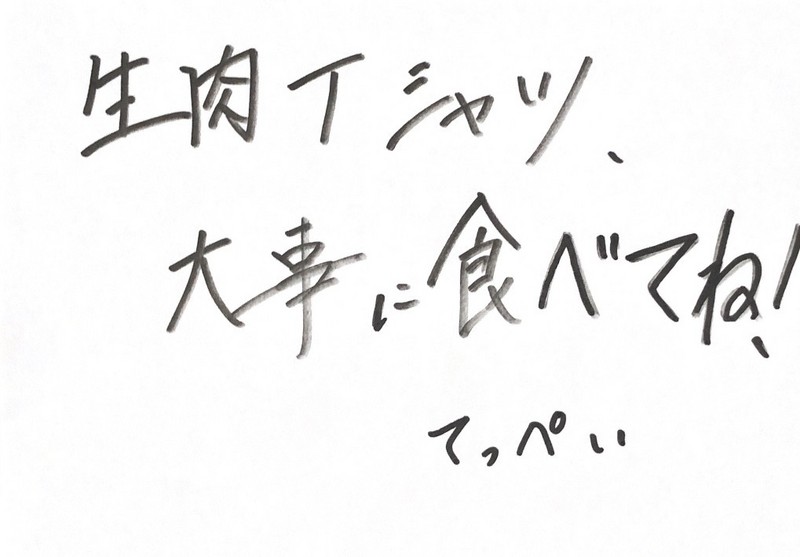 生肉Tシャツ、
大事に食べてね!
てっぺい